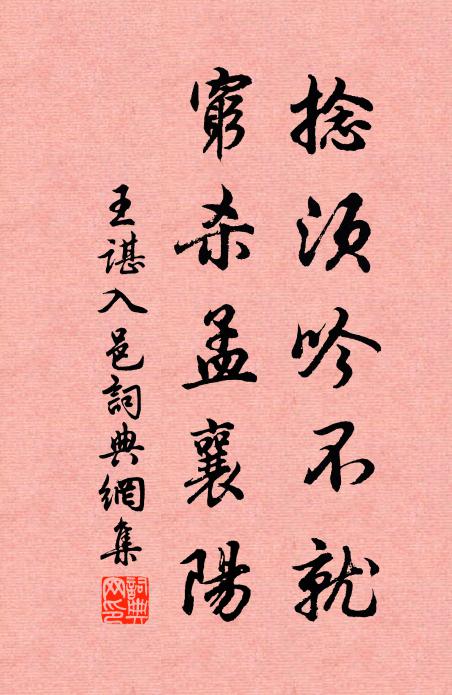 捻須吟不就
窮殺孟襄陽
王諶入邑詞典網集
詞典網印